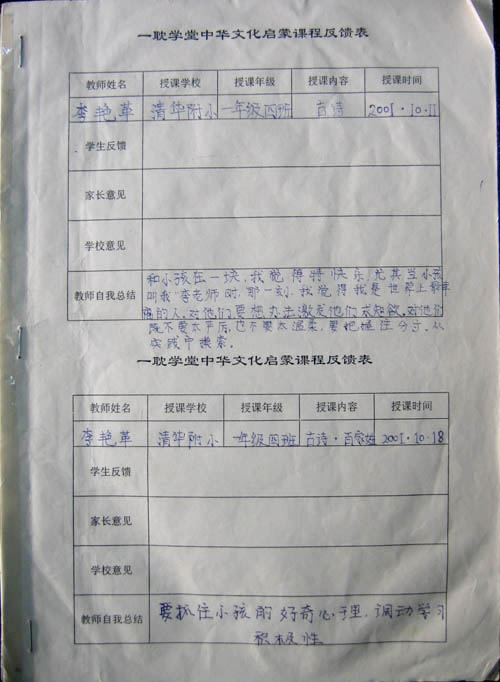 一耽学堂中华文化启蒙课程反馈表
教师姓名 授课学校 授课年级 授课内容 授课时间
李艳革 清华附小 一年级四班 古诗 2001·10·11
学生反馈
家长意见
学校意见
教师自我总结
和小孩在一块,我觉得特快乐,尤其当小孩
叫我"李老师"时,那一刻,我觉得我是世界上最幸
福的人。对他们要想办法激发他们求知欲。对他们
既不要太严厉,也不要太温柔,要把握注分寸。从
实践中摸索。
一耽学堂中华文化启蒙课程反馈表
教师姓名 授课学校 授课年级 授课内容 授课时间
李艳革 清华附小 一年级四班 古诗·百家姓 2001·10·18
学生反馈
家长意见
学校意见
教师自我总结
要抓住小孩的好奇心理,调动学习
积极性